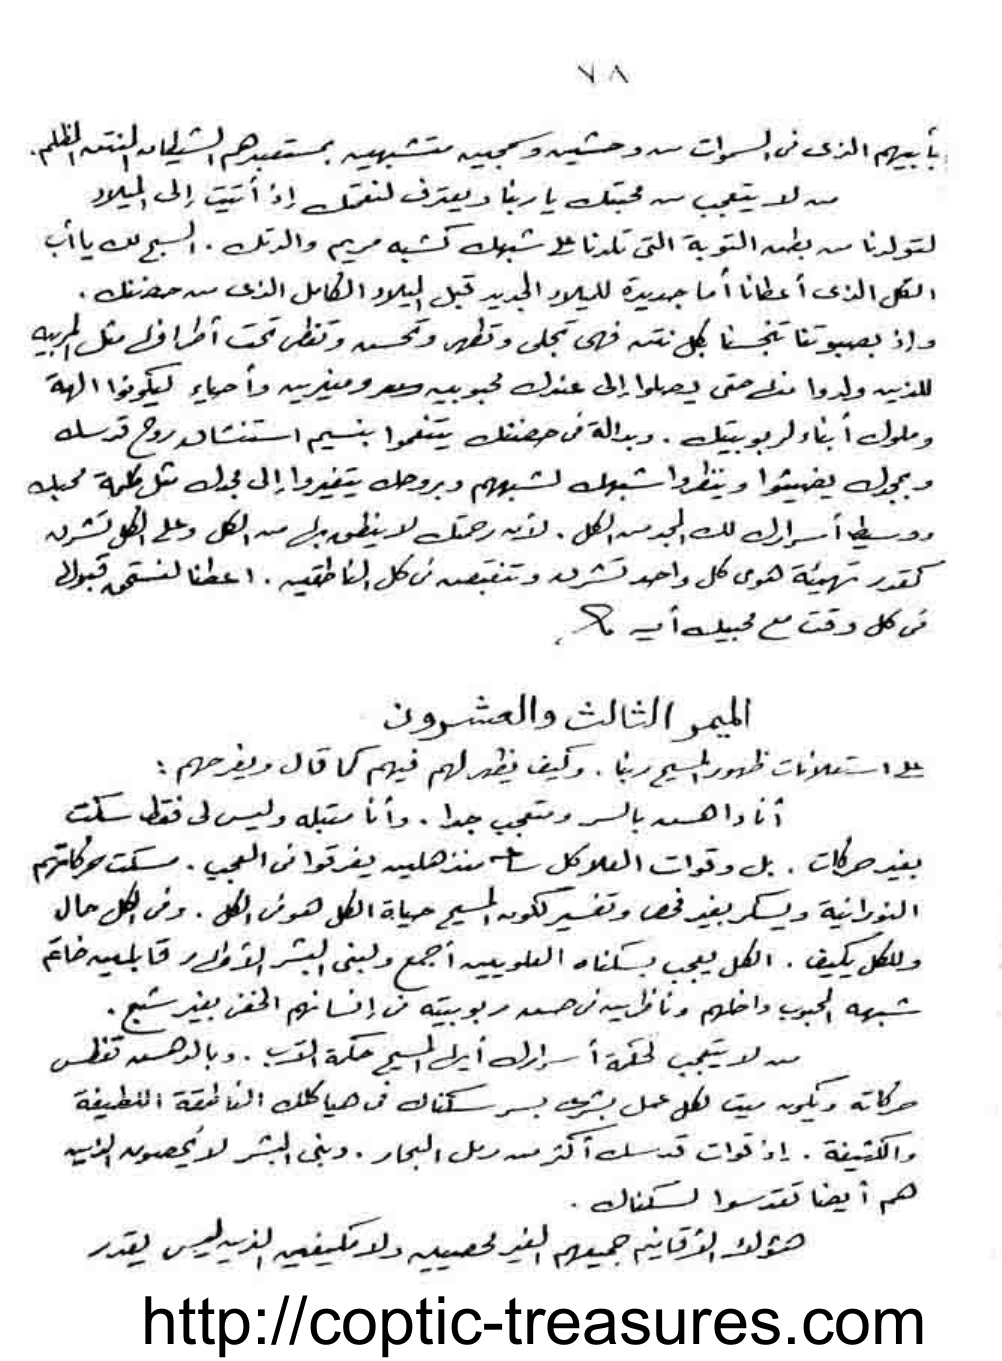 ٧٨
بأبيهم الذى فى السموات من وحشين وسمجين متشبهين بمستعبدهم الشيطان المنتن المظلم.
من لا يتعجب من محبتك يا ربنا ويعترف لنعمتك إذ أتيت إلى الميلاد
لتولدنا من بطن التوبة التى تلدنا على شبهك كشبه مريم والدتك. السبح لك يا أب
الكل الذى أعطانا أما جديدة للميلاد الجديد قبل الميلاد الكامل الذى من حضنك.
وإذ بصبوتنا تنجسنا بكل نتن فهى تجلى وتطهر وتحسن وتغطى تحت أطرافها مثل المربيه
للذين ولدوا منك حتى يصلوا إلى عندك محبوبين ومنيرين وأحياء ليكونوا الهة
وملوك أبناء لربوبيتك. وبدالة فى حضنك يتنعموا بنسيم استنشاق روح قدسك
وبمجدك يضيئوا وينظروا شبهك لشبههم وبروحك يتغيروا إلى مجدك مثل كلمة محبك
ووسيط أسرارك لك المجد من الكل. لأن رحمتك لا ينطق بها من الكل وعلى الكل تشرق
كقدر تهيئة هوى كل واحد تشرق وتنقبض فى كل الناطقين. اعطنا لنستحق قبولها
فى كل وقت مع محبيك أمين
الميمر الثالث والعشرون
على استعلانات ظهور المسيح ربنا. وكيف يظهر لهم فيهم كما قال ويفرحهم:
أنا داهش بالسر ومتعجب جدا. وأنا مقبله وليس لى فقط سكت
بغير حركات. بل وقوات العلا كل منذهلين يغرقوا فى العجب. مسكت حركاتهم
النورانية ويسكر بغير فحص وتفسير لكون المسيح حياة الكل هو فى الكل. وفى الكل حال
وللكل يكيف. الكل يعجب بسكناه العلويين أجمع ولبنى البشر قابلين خاتم
شبهه المحبوب داخلهم وناظرين فى حسن ربوبيته فى إنسانهم الخفى بغير شبع.
من لا يتعجب لحقة أسرارك أيها المسيح حكمة الآب. وبالدهش تغطس
حركاته ويكون ميت لكل عمل بشرى بسر سكناك فى هياكلك الناطقة اللطيفة
والكثيفة. إذ قوات قدسك أكثر من رمل البحار. وبنى البشر لا يحصون الذين
هم أيضا تقدسوا لسكناك.
هؤلاء جميعهم الغير محصيين ولا مكيفين الذين ليس يقدر
http://coptic-treasures.com